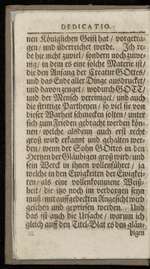 DEDICATIO.
nen Königlichen Geist hat / vorgetra-
gen / und überreichet werde. Ich re-
de hie nicht zuviel / sondern noch zuwe-
nig / in dem es eine solche Materie ist /
die den Anfang der Creatur GOttes /
und das Ende aller Dinge ausdrucket /
und davon zeuget / wodurch GOTT /
und der Mensch vereiniget / und auch
die strittige Partheyen / so viel sie von
dieser Warheit schmecken solten / unter
sich zum Frieden gebracht werden kön-
nen / welche alsdenn auch erst recht
groß wird erkannt und gehalten wer-
den / wenn der Sohn GOttes in den
Hertzen der Gläubigen groß wird / und
sein Werck in ihnen vollenführet / ja
welche in den Ewigkeiten der Ewigkei-
ten / als eine vollenkommene Weiß-
heit / die itzo noch im verborgen keimet /
mit auffgedecktem Angesicht wird
gesehen und gepriesen werden. Und
das ist auch die Ursache / warum ich
gleich auff den Titel-Blat es den gläu-
bigen